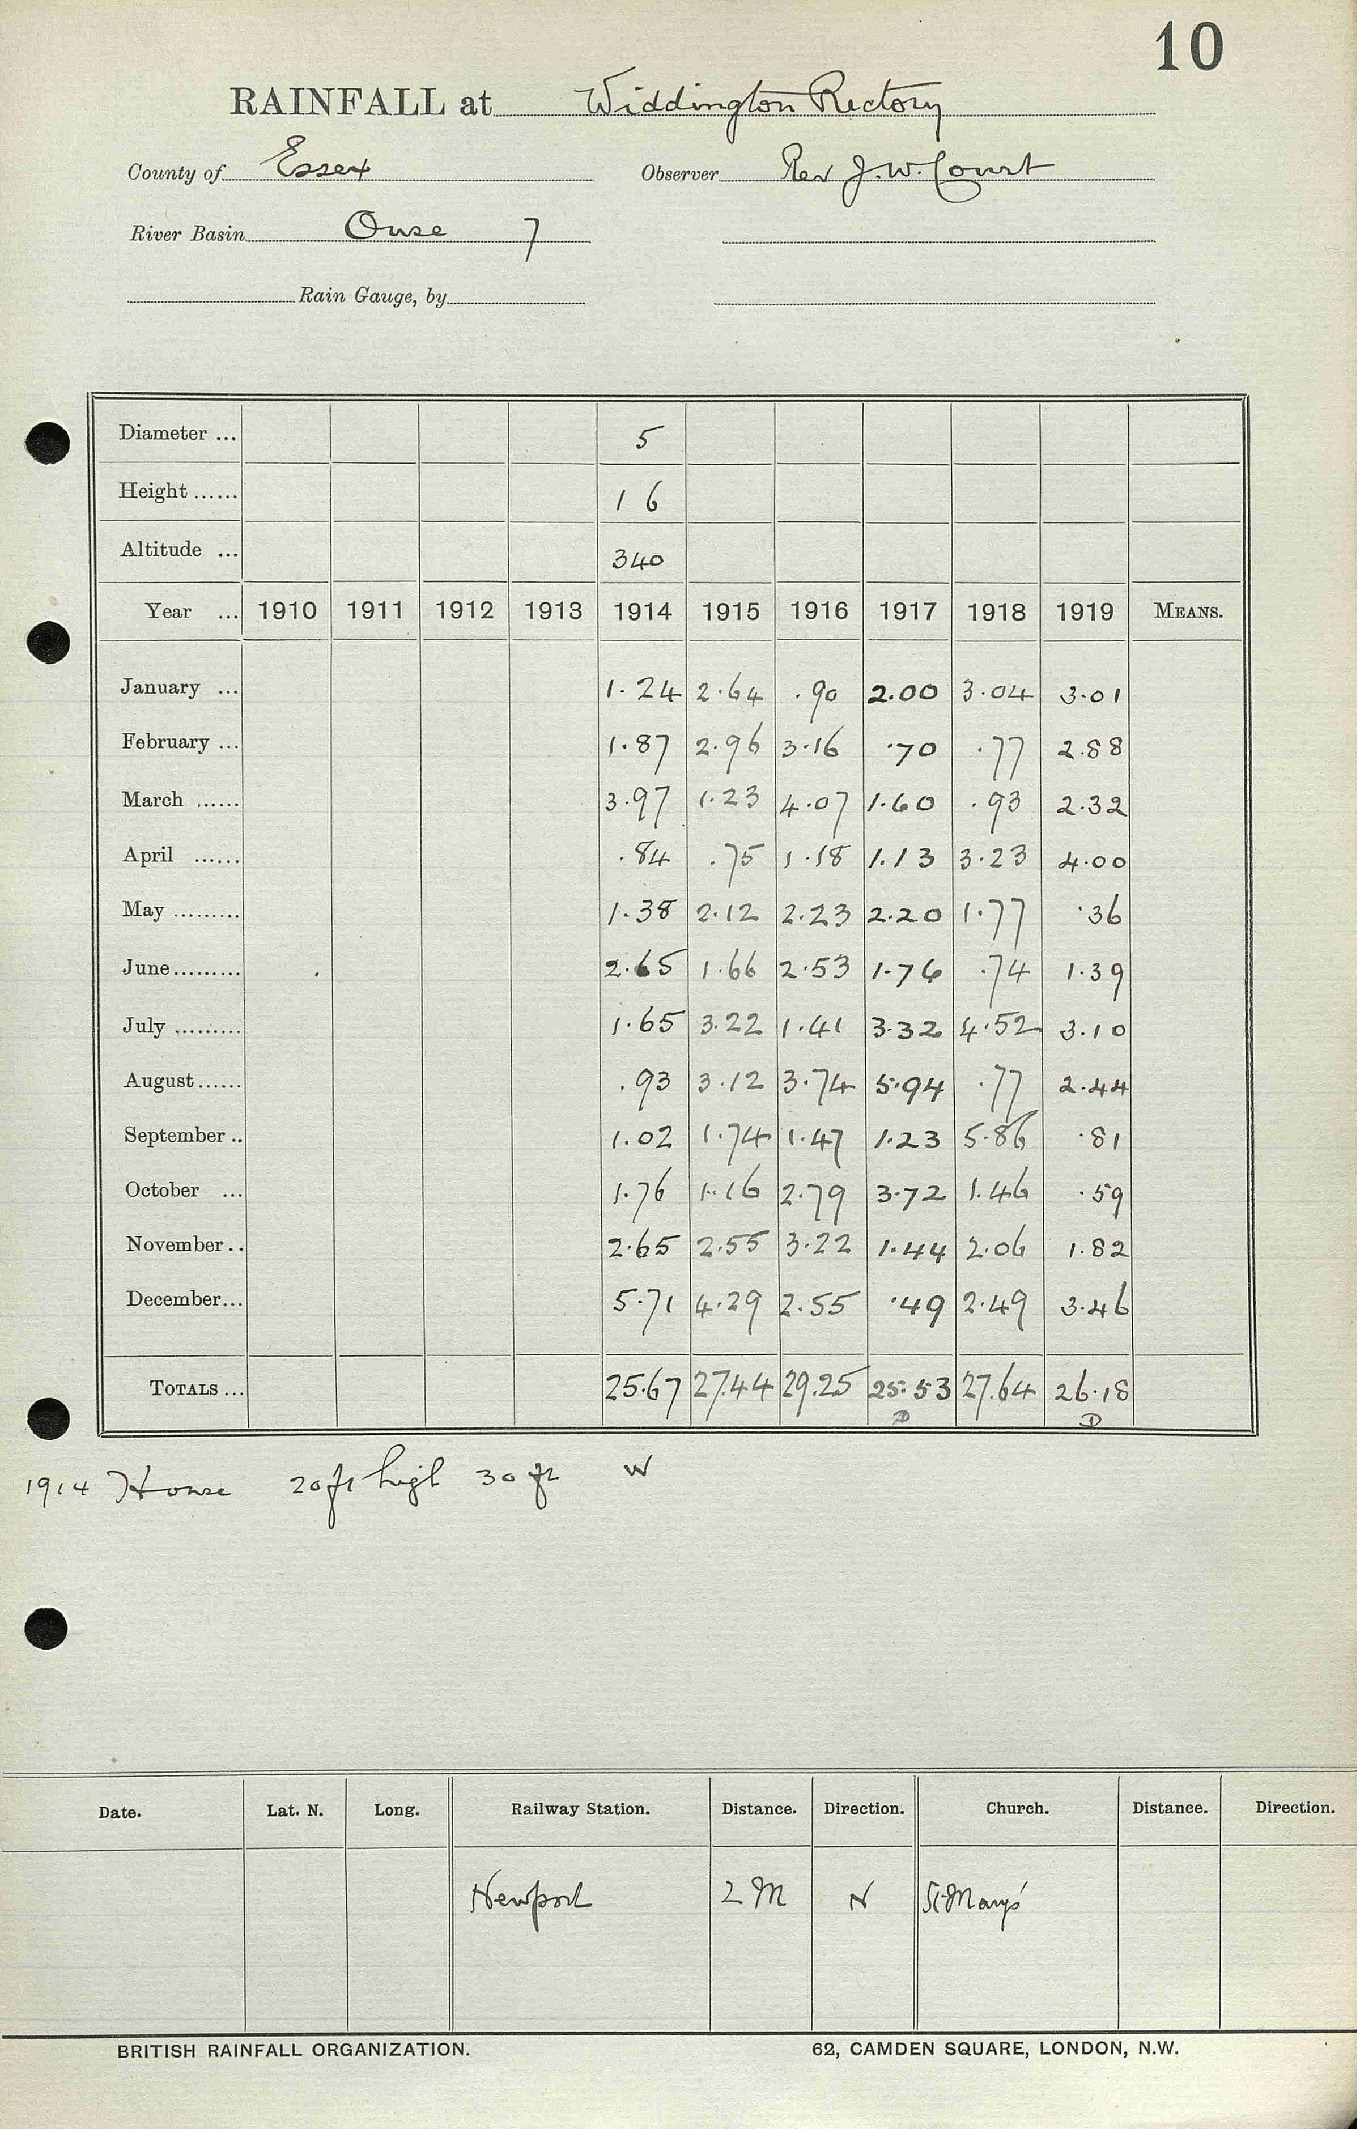 10
RAINFALL at Widdington Rectory
County of Essex Observer Rev J. W. Court
River Basin Ouse 7
Rain Gauge, by
Diameter ... 5
Height ...... 1 6
Altitude ... 340
Year ... 1910 1911 1912 1913 1914 1915 1916 1917 1918 1919 MEANS.
January ... 1.24 2.64 .90 2.00 3.04 3.01
February ... 1.87 2.96 3.16 .70 .77 2.88
March ...... 3.97 1.23 4.07 1.60 .93 2.32
April ...... .84 .75 1.18 1.13 3.23 4.00
May ......... 1.38 2.12 2.23 2.20 1.77 .36
June......... 2.65 1.66 2.53 1.76 .74 1.39
July ......... 1.65 3.22 1.41 3.32 4.52 3.10
August...... .93 3.12 3.74 5.94 .77 2.44
September .. 1.02 1.74 1.47 1.23 5.86 .81
October ... 1.76 1.16 2.79 3.72 1.46 .59
November .. 2.65 2.55 3.22 1.44 2.06 1.82
December... 5.71 4.29 2.55 .49 2.49 3.46
TOTALS ... 25.67 27.44 29.25 25.53 27.64 26.18
D D
1914 House 20ft high 30 ft W
Date. Lat. N. Long. Railway Station. Distance. Direction. Church. Distance. Direction.
Newport 2 M N St Mary's
BRITISH RAINFALL ORGANIZATION. 62, CAMDEN SQUARE, LONDON, N.W.